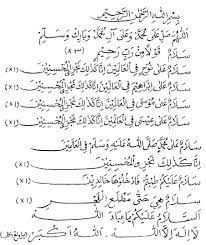 بِسْمِ اللهِ الرَّحْمٰنِ الرَّحِيْمِ
اللهُمَّ صَلِّ عَلَى مُحَمَّدٍ وَعَلَى آلِ مُحَمَّدٍ وَبَارِكْ وَسَلِّمْ
سَلَامٌ قَوْلًا مِنْ رَبٍّ رَحِيْمٍ (٨٣×)
سَلَامٌ عَلَى نُوْحٍ فِى الْعَالَمِيْنَ إِنَّا كَذَلِكَ نَجْزِى الْمُحْسِنِيْنَ (×١)
سَلَامٌ عَلَى فِى الْعَالَمِيْنَ إِنَّا كَذَلِكَ نَجْزِى الْمُحْسِنِيْنَ (×١)
سَلَامٌ عَلَى فِى الْعَالَمِيْنَ إِنَّا كَذَلِكَ نَجْزِى الْمُحْسِنِيْنَ (×١)
سَلَامٌ عَلَى فِى الْعَالَمِيْنَ إِنَّا كَذَلِكَ نَجْزِى الْمُحْسِنِيْنَ (×١)
سَلَامٌ عَلَى مُحَمَّدٍ صَلَّى اللهُ عَلَيْهِ وَسَلَّمَ
إِنَّا كَذَلِكَ نَجْزِى الْمُحْسِنِيْنَ (×١)
سَلَامٌ عَلَيْكُمْ طِبْتُمْ فَادْخُلُوْهَا خَالِدِيْنَ (×١)
سَلَامٌ هِيَ حَتَّى مَطْلَعِ الْفَجْرِ (×١)
السَّلَامُ عَلَيْكُمْ يَا عِبَادَ اللهِ
لَا إِلٰهَ إِلَّا اللهُ اللهُ أَكْبَرُ